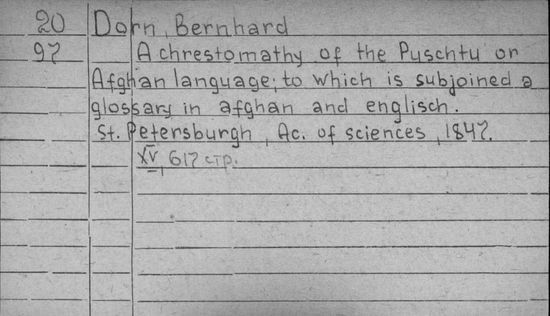 20 Dorn, Bernhard
97 A chrestomathy of the Puschtu or
Afghan language; to which is subjoined a
glossary in afghan and englisch.
St. Petersburgh, Ac. of sciences, 1847.
XV, 617 стр.